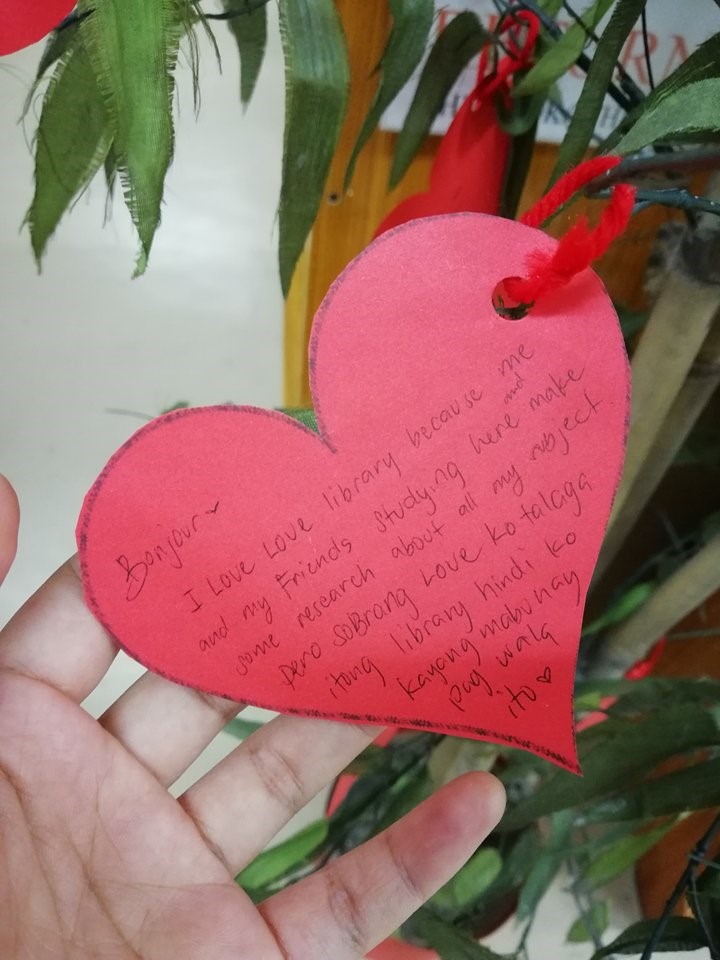 Bonjour
I Love Love library because me
and my Friends studying here and make
some research about all my subject.
Pero soBrang Love ko talaga
itong library hindi ko
kayang mabuhay
pag wala
ito